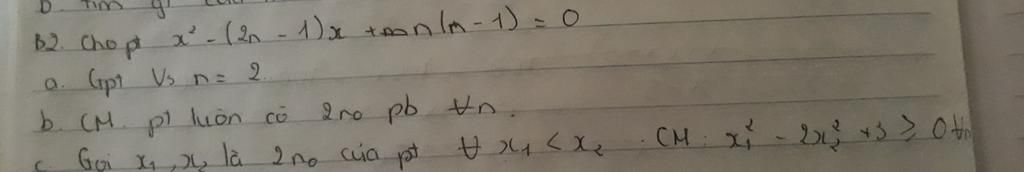 b. Tìm gi
B2. Cho pt x² - (2n - 1)x + n(n - 1) = 0
a. Gpt Vs n = 2.
b. CM. pt luôn có 2 no pb ∀n.
c. Gọi x₁, x₂ là 2 no của pt ∀ x₁ < x₂. CM: x₁² - 2x₂² + 3 ≥ 0 ∀n